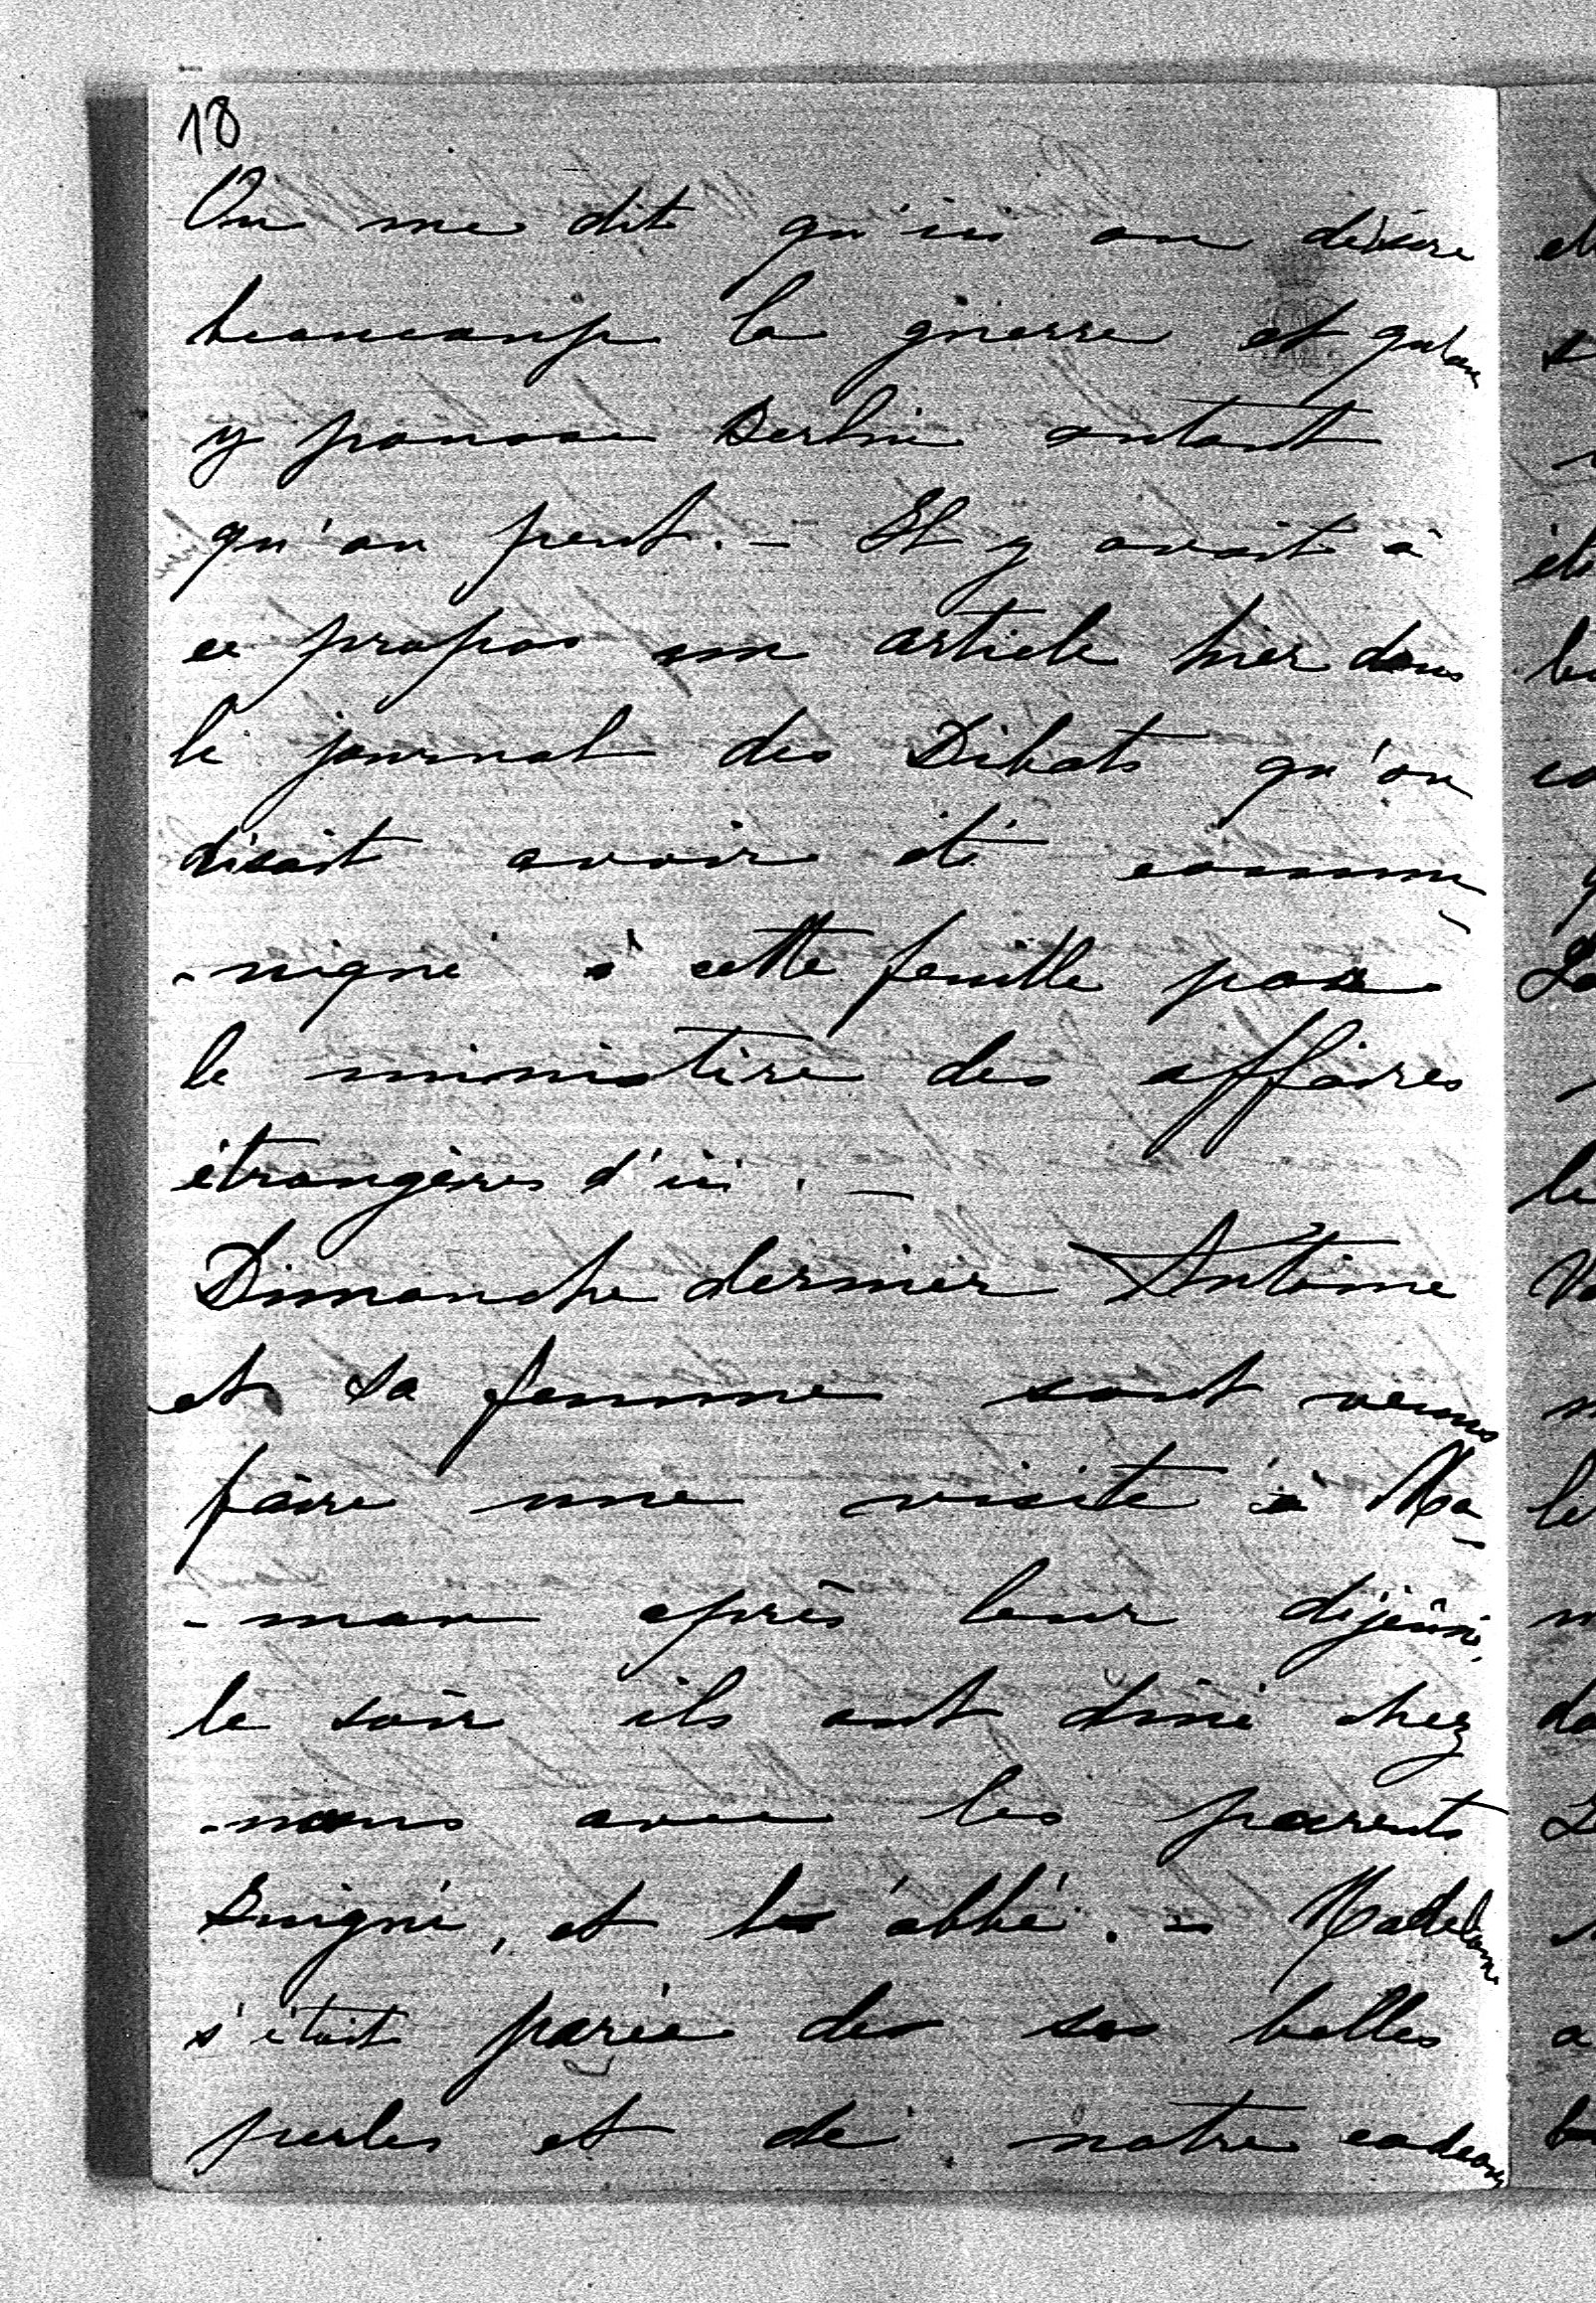 18
On me dit qu'ici on désire
beaucoup la guerre et qu'on
y pousse Berlin autant
qu'on peut. — Il y avait à
ce propos un article hier dans
le journal des Débats qu'on
disait avoir été commu
-niqué à cette feuille par
le ministère des affaires
étrangères d'ici. —
Dimanche dernier Antoine
et sa femme sont venus
faire une visite à Ma-
-man après leur déjeûné,
le soir ils ont dîné chez
nous avec les parents
et l'abbé. — Madelaine
s'était parée de ses belles
perles et de notre cadeau